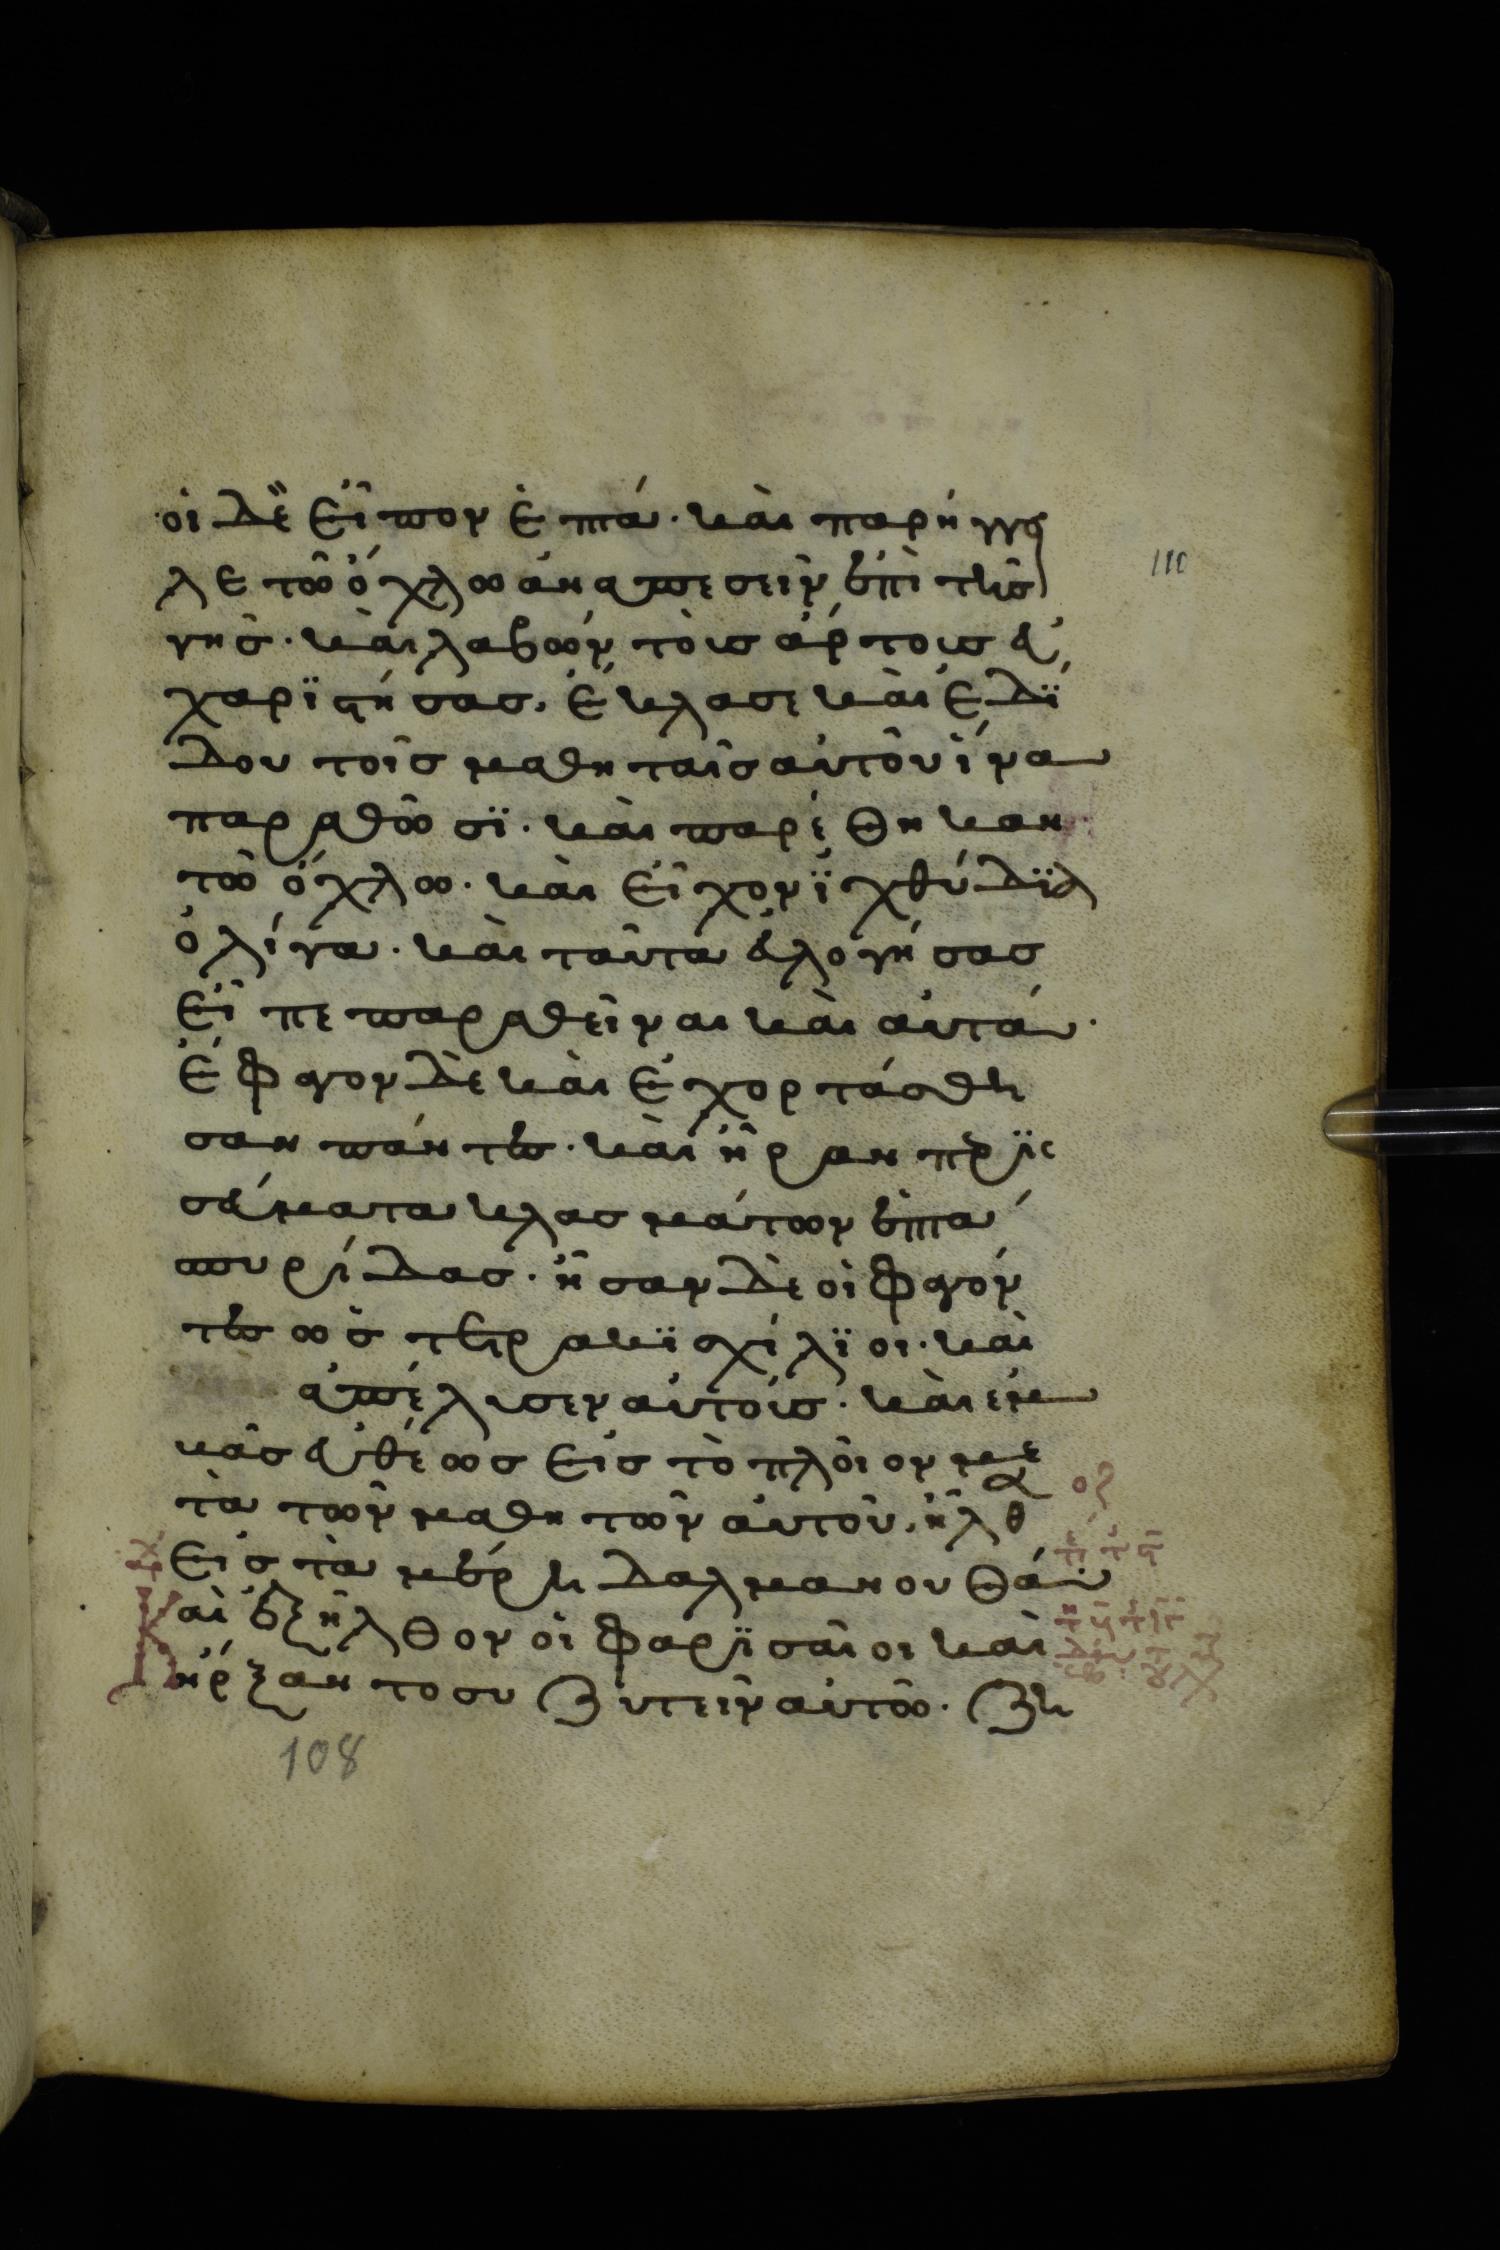 οἱ δὲ εἶπον ἑπτά· καὶ παρήγγει
λε τῶ ὄχλω ἀναπεσεῖν ἐπὶ τῆς
γῆς· καὶ λαβὼν τοὺς ἄρτους εὐ
χαρϊστήσας, ἔκλασε καὶ ἐδΐ
δου τοῖς μαθηταῖς αὐτοῦ ἵνα
παραθῶσϊ· καὶ παρέθηκαν
τῶ ὄχλω· καὶ εἶχον ϊχθύδϊα
ὀλίγα· καὶ ταῦτα εὐλογήσας
εἶπε παραθεῖναι καὶ αὐτά·
ἔφαγον δὲ καὶ ἐχορτάσθη
σαν πάντες· καὶ ἦραν περϊσ
σεύματα κλασμάτων ἑπτὰ
σπυρίδας· ἦσαν δὲ οἱ φαγόν
τες ὡς τετρακϊσχίλϊοι· καὶ
ἀπέλυσεν αὐτούς· καὶ ἐμ
βὰς εὐθέως εἰς τὸ πλοῖον με
τὰ τῶν μαθητῶν αὐτοῦ, ἦλθ
εἰς τὰ μέρη δαλμανουθά·
Καὶ ἐξῆλθον οἱ φαρϊσαῖοι καὶ
ἤρξαντο συζητεῖν αὐτῶ· ζη
110
οζ
108